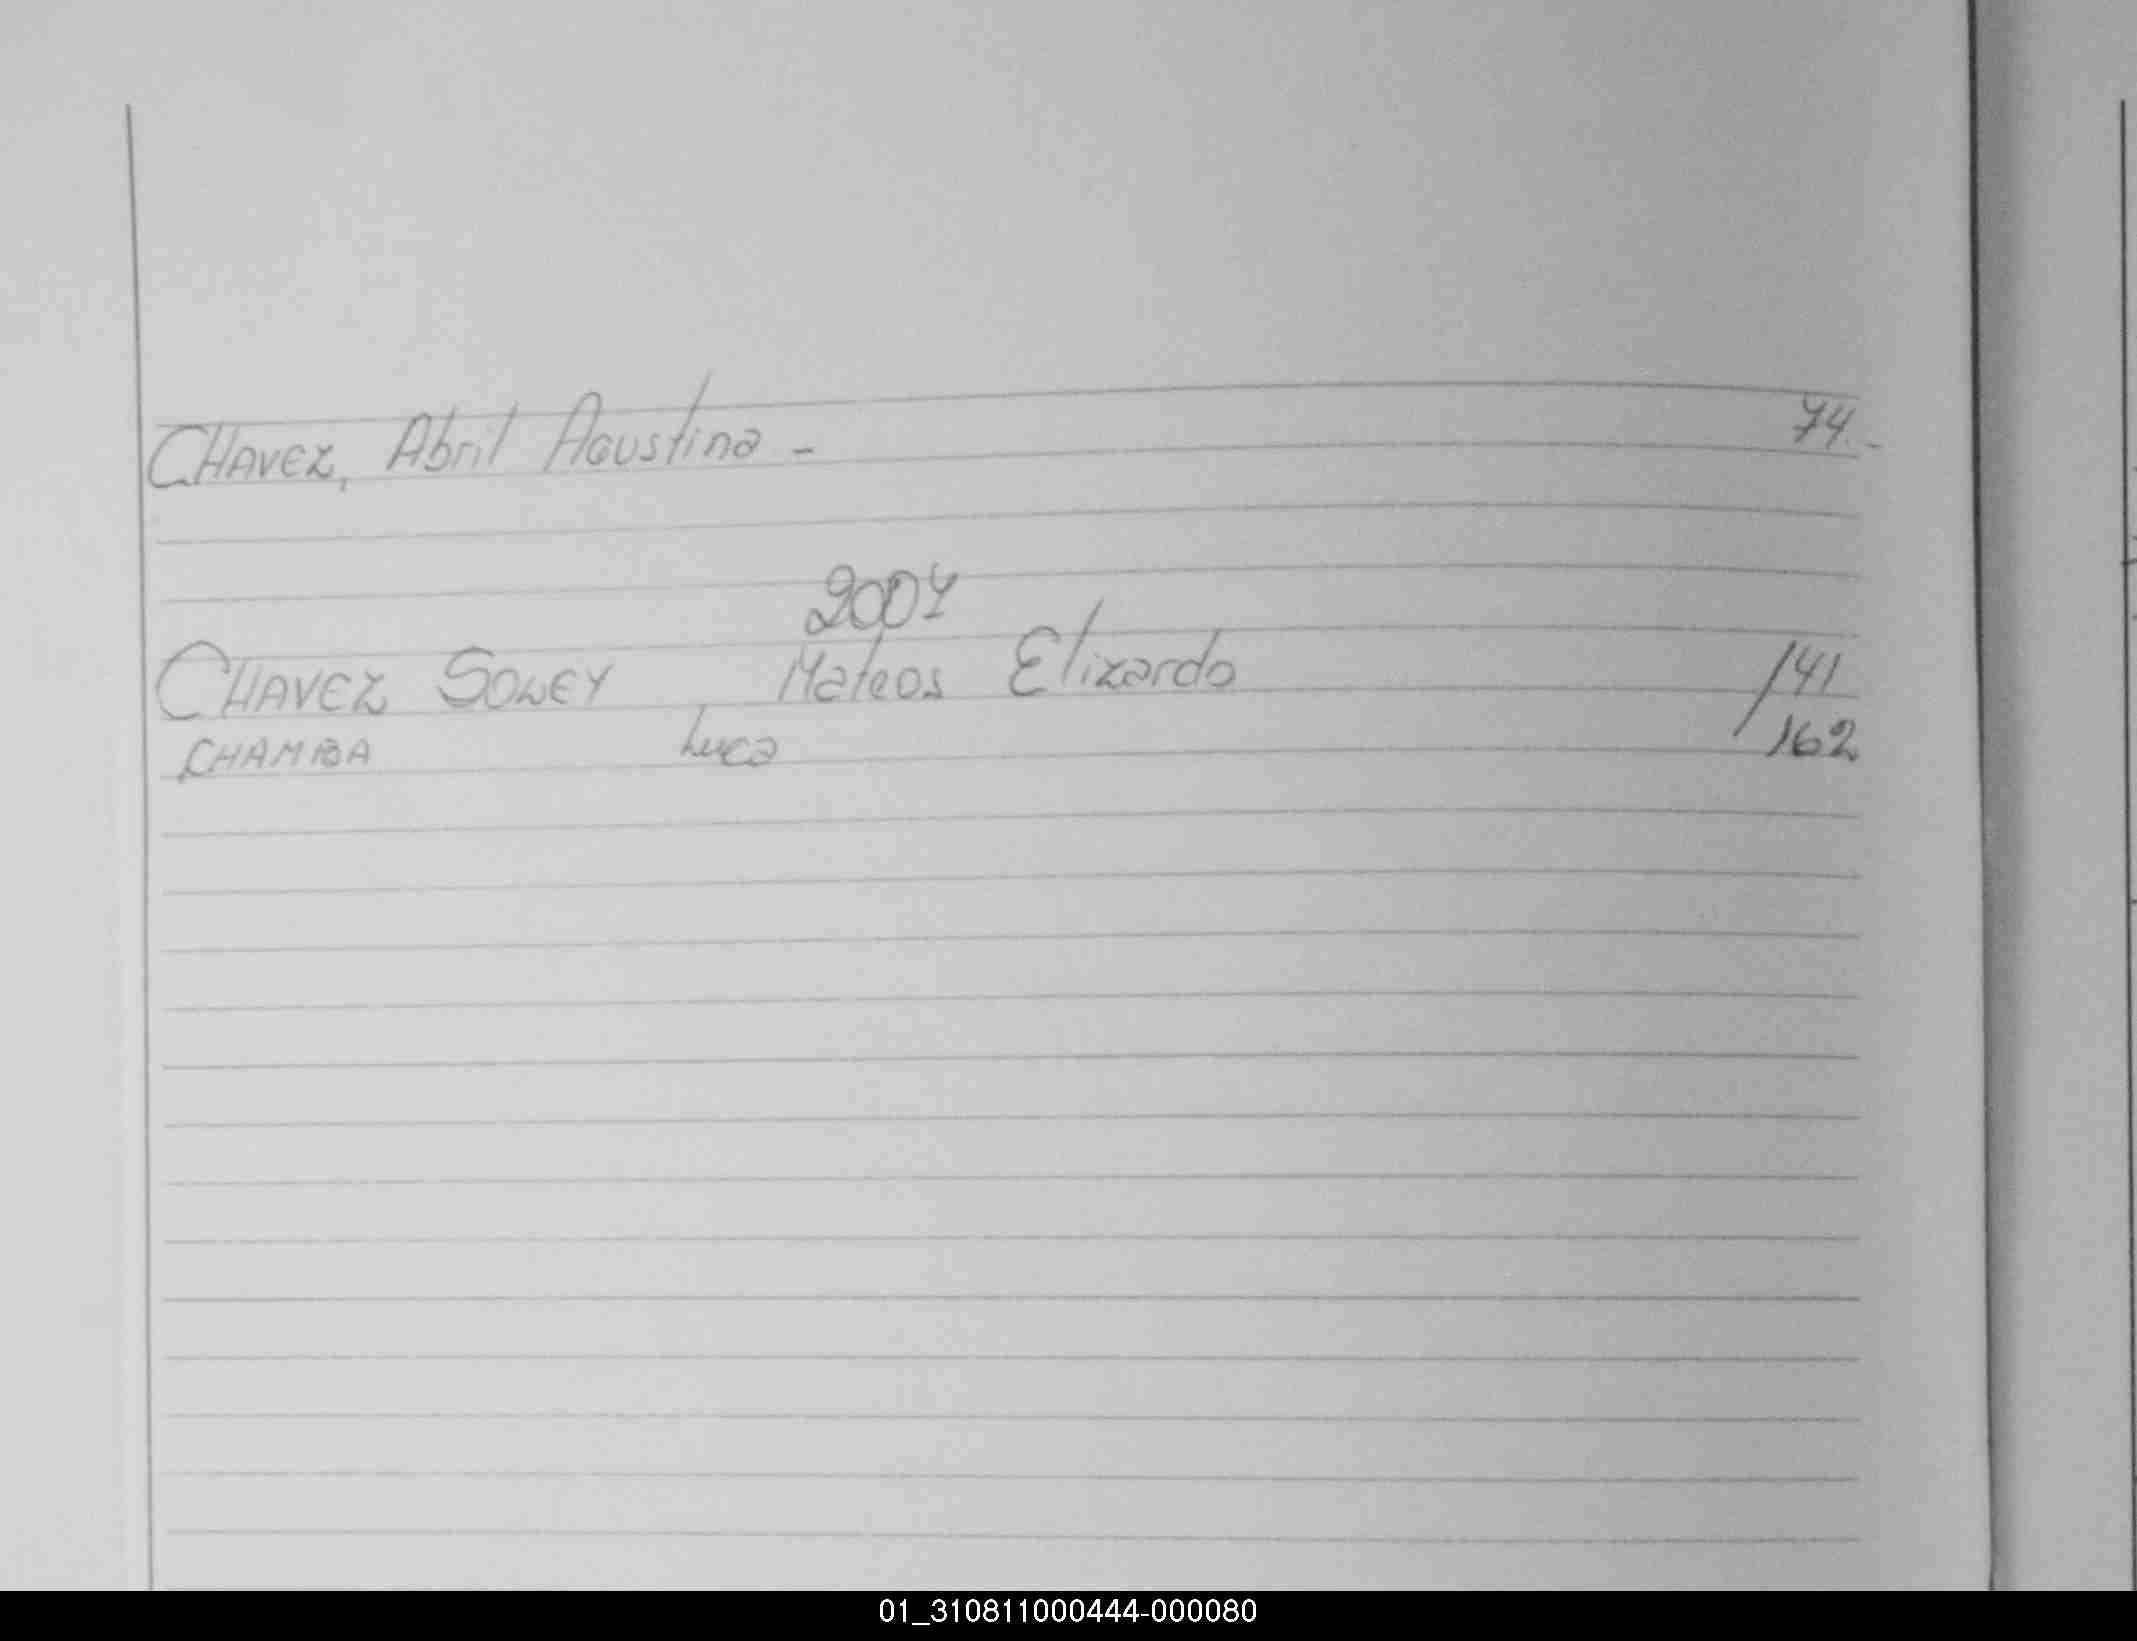 CHAVEZ, Abril Agustina - 74.-
2004
CHAVEZ SONEY Mateos Elizardo 141
CHAMBA Luca 162
01_310811000444-000080